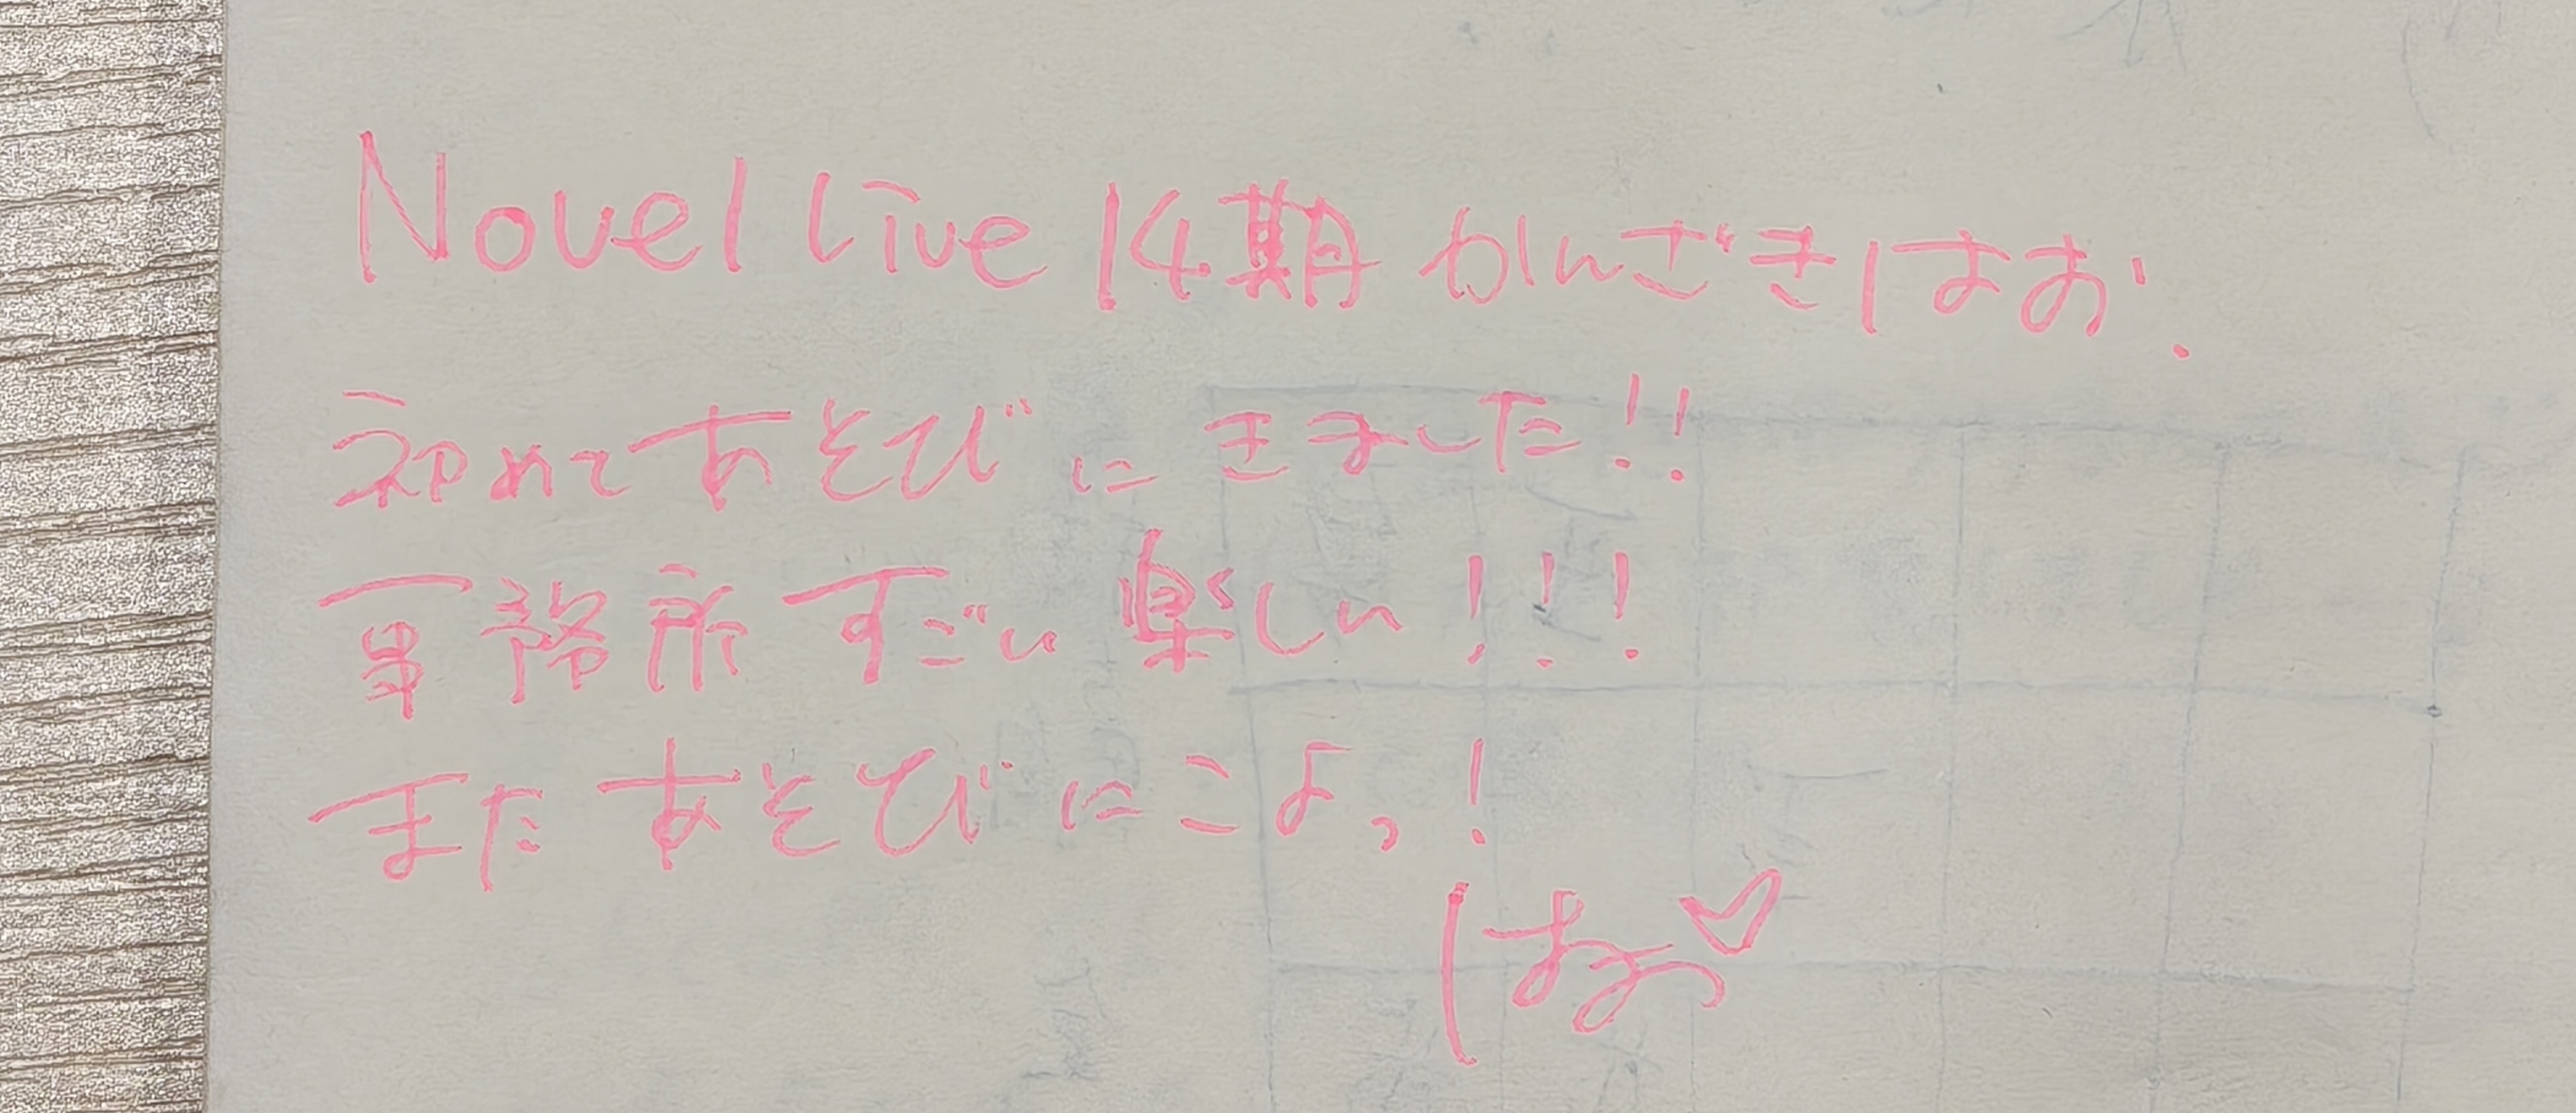 Novel live 14期 かんざきはお.
初めてあそびにきました!!
事務所すごい楽しい!!!
またあそびにこよっ!
はお♡